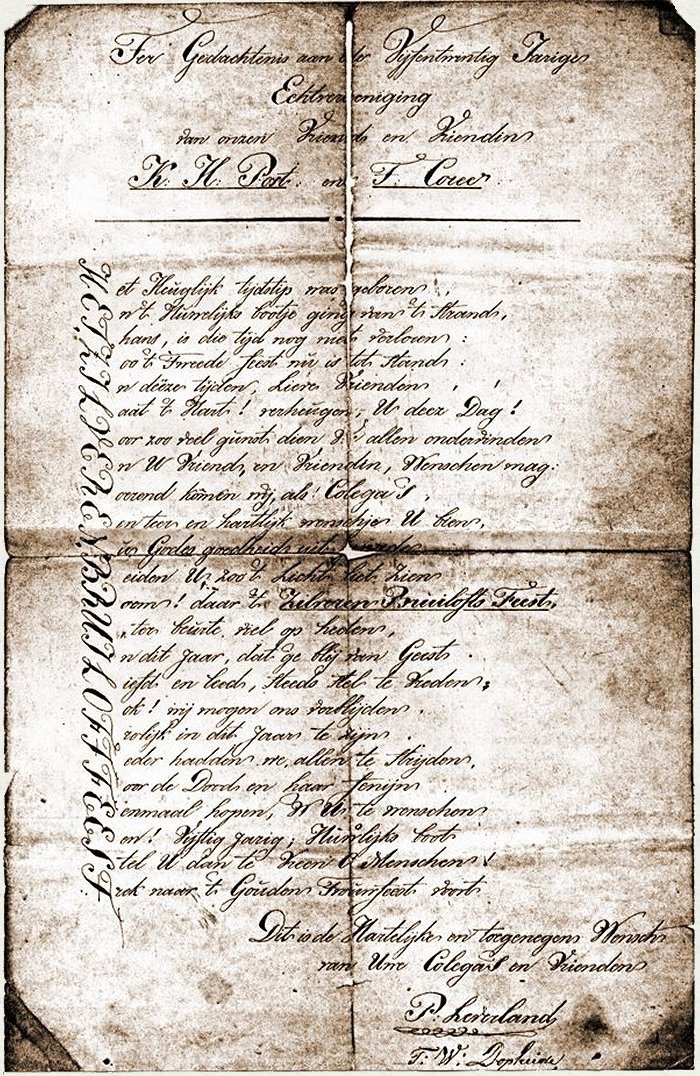 Ter Gedachtenis aan de Vijfentwintig Jarige
Echtvereeniging
van onzen Vriend en Vriendin
K. H. Post. en F. Coree
Het Heuglijk tijdstip was geboren,
En 't Huwelijks bootje ging van 't Strand,
Thans, is die tijd nog niet verloren:
Zoo 't Tweede feest nu is tot Stand:
In déèze tijden, Lieve Vrienden,
Laat 't Hart! verheugen, U deez Dag!
Voor zoo veel gunst dien U allen ondervinden
En U Vriend, en Vriendin, Wenschen mag:
komen wij, als Colega'S,
Een teer en hartlijk wenschje U bien,
Nu Godes goedheids
Beiden U zoo 't Licht liet Zien
Room! daar 't Zilveren Bruilofts Feest,
U ter beurte, viel op heden,
In dit Jaar, dat ge blij van Geest
Liefd en leed, Steeds Stel te Vreden;
Ook! wij mogen ons verblijden.
Frolijk in dit Jaar te zijn
Teder hadden we, allen te Strijden,
Foor de Dood en haar fenijn
Eenmaal hopen, W U te wenschen
En! Vijftig Jarig; Huwlijks boot
Stel U dan te Vreen O Menschen!
Trek naar 't Gouden Trouwfeest voort.
Dit is de Hartelijke en toegenegen Wensch
van Uwe Colega'S en Vrienden
P. Leverland
T. W. Dopheide